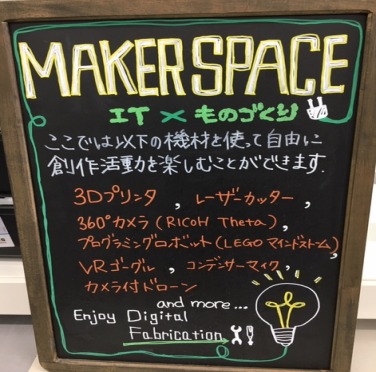 MAKER SPACE
IT × ものづくり
ここでは以下の機材を使って自由に
創作活動を楽しむことができます.
3Dプリンタ , レーザーカッター ,
360°カメラ (RICOH Theta) ,
プログラミングロボット (LEGO マインドストーム) ,
VRゴーグル , コンデンサーマイク ,
カメラ付ドローン
and more...
Enjoy Digital
Fabrication